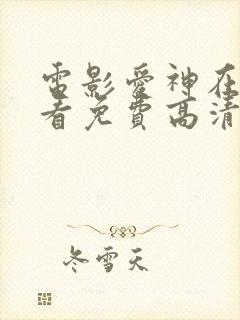 電影愛神在
看免費高清
冬雪天